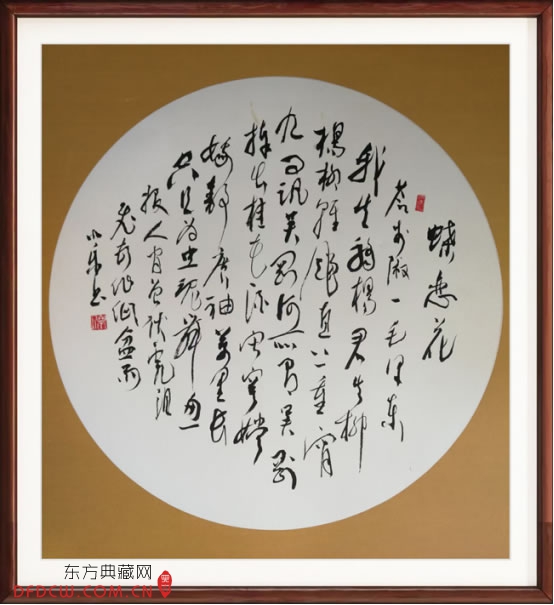 蝶恋花
答李淑一毛泽东
我失骄杨君失柳
杨柳轻飏直上重霄
九问讯吴刚何所有吴刚
捧出桂花酒寂寞嫦
娥舒广袖万里长
空且为忠魂舞忽
报人间曾伏虎泪
飞顿作倾盆雨
书
东方典藏网
DFDCW.COM.CN